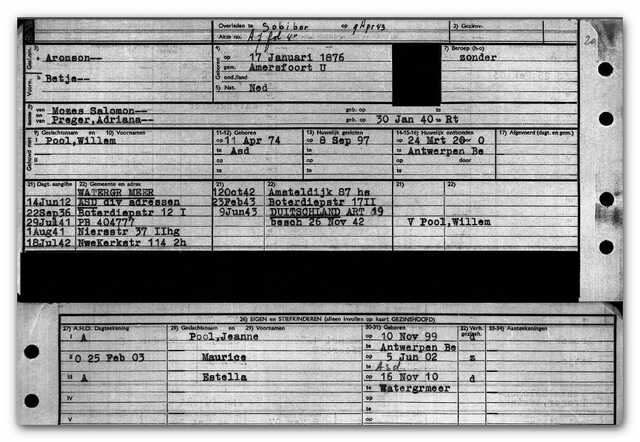 Overleden te Sobibor op 9 Apr 43 2) Gezinnr.
Akte no. A f fol 4v
1) Aronson-- 4) op 17 Januari 1876 7) Beroep (h-o)
gem. Amersfoort U zonder
ond./land
Betje-- 5) Nat. Ned
van Mozes Salomon-- geb. op
en van Preger, Adriana-- geb. op 30 Jan 40 te Rt
9) Geslachtsnaam en 10) Voornamen 11-12) Geboren 13) Huwelijk gesloten 14-15-16) Huwelijk ontbonden 17) Afgevoerd (dagt. en gem.)
I Pool,Willem op 11 Apr 74 op 8 Sep 97 op 24 Mrt 20 O
te Asd te te Antwerpen Be
op op op door
te te te
21) Dagt. aangifte 22) Gemeente en adres 21) 22) 21) 22)
WATERGR MEER 12Oct42 Amsteldijk 87 hs
14Jun12 ASD div adressen 23Feb43 Boterdiepstr 17II
22Sep36 Boterdiepstr 12 I 9Jun43 DUITSCHLAND ART 19
29Jul41 PB 404777 besch 26 Nov 42 V Pool,Willem
1Aug41 Niersstr 37 IIhg
18Jul42 NweKerkstr 114 2h
26) EIGEN en STIEFKINDEREN (alleen invullen op kaart GEZINSHOOFD)
27) A.H.O. Dagteekening 28) Geslachtsnaam en 29) Voornamen 30-31) Geboren 32) Verh. gezinsh. 33-34) Aanteekeningen
I A Pool,Jeanne op 10 Nov 99 d
te Antwerpen Be
II O 25 Feb 03 Maurice op 5 Jun 02 z
te Asd
III A Estella op 16 Nov 10 d
te Watergrmeer
IV op
te
V op